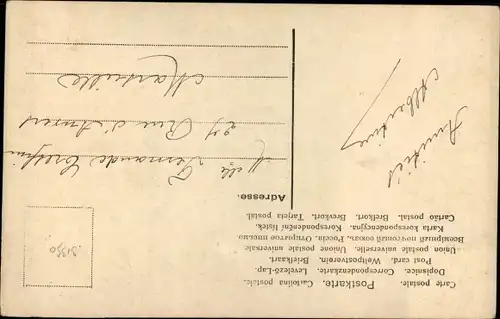 Carte postale. Postkarte. Cartolina postale.
Dopisnice. Correspondenzkarte. Levelező-Lap.
Post card. Weltpostverein. Briefkaart.
Union postale universelle. Unione postale universale
Всемірный почтовый союзъ, Россія. Открытое письмо
Karta korespondencyjna. Korespondenční lístek.
Cartão postal. Brefkort. Brevkort. Tarjeta postal.
Adresse.
Melle Fernande
27 Rue d'
Marseille
Amitiés
Albertine